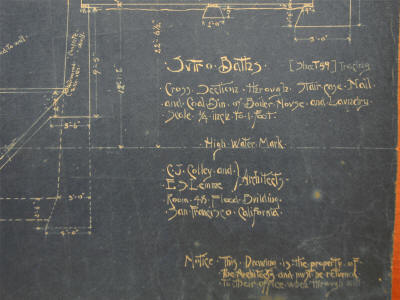 Sutro Baths. [Sheet 59] Tracing
Cross Sections through Stair case, Hall
and Coal Bin of Boiler House and Laundry.
Scale ¼ inch to 1 foot.
High Water Mark
C.J. Colley and } Architects.
E.S. Lemme
Room 48 Flood Building.
San Francisco California.
Notice This Drawing is the property of
the Architects and must be returned
to their office when through with
9'-5"
22'-6"
3'-0"
3'-6"